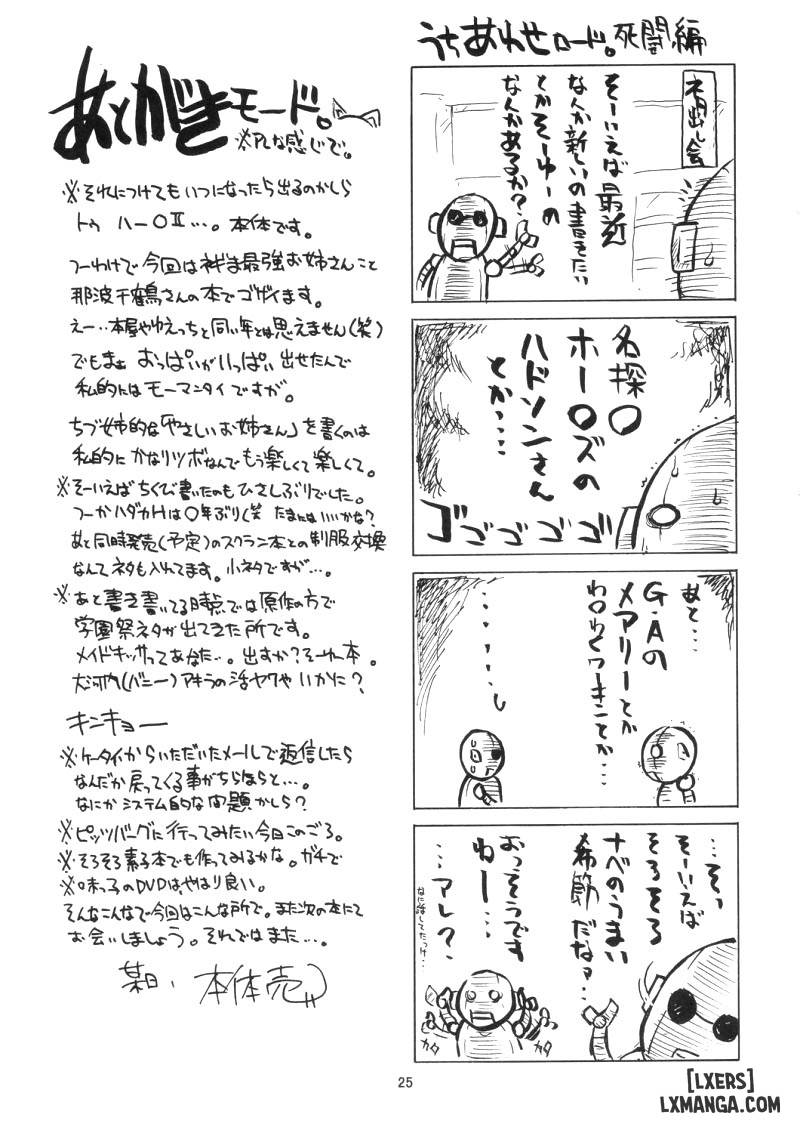 うちあわせロード。死闘編
ネタ出し会
そーいえば最近
なんか新しいの書きたい
とかそーゆーの
なんかあるか？
名探〇
ホー〇ズの
ハドソンさん
とか‥‥
ゴゴゴゴゴ
あと‥‥
G・Aの
メアリーとか
わ〇わくワーキンとか‥‥
‥‥そぅ
そーいえば
そろそろ
ナベのうまい
季節だなァ‥‥
おっそうです
ねー‥‥
‥‥アレ？
なに話してたっけ‥‥
カタ
カタ
あとがきモード。
※PLな感じで。
※それにつけてもいつになったら出るのかしら
トゥ ハー〇Ⅱ‥‥。本体です。
つーわけで今回はネギま最強お姉さんこと
那波千鶴さんの本でゴザイます。
えー‥本屋やゆえっちと同い年とは思えません(笑)
でもまぁ おっぱいがいっぱい出せたんで
私的にはモーマンタイですが。
ちづ姉的な「やさしいお姉さん」を書くのは
私的にかなりツボなんでもう楽しくて楽しくて。
※そーいえばちくび書いたのもひさしぶりでした。
つーかハダカHは〇年ぶり(笑 たまにはいいかな？
あと同時発売(予定)のスクラン本との制服交換
なんてネタも入れてます。小ネタですが‥‥。
※あと書き書いてる時点では原作の方で
学園祭ネタが出てきた所です。
メイドキッサってあなた‥。出すか？そーゆー本。
大河内(バニー)アキラの活ヤクやいかに？
キンキョー
※ケータイからいただいたメールで返信したら
なんだか戻ってくる事がちらほらと‥‥。
なにかシステム的な問題かしら？
※ピッツバーグに行ってみたい今日このごろ。
※そろそろ素子本でも作ってみるかな。ガチで
※味っ子のDVDはやはり良い。
そんなこんなで今回はこんな所で。また次の本にて
お会いしましょう。それではまた‥‥。
某日、本体売
25
[LXERS]
LXMANGA.COM